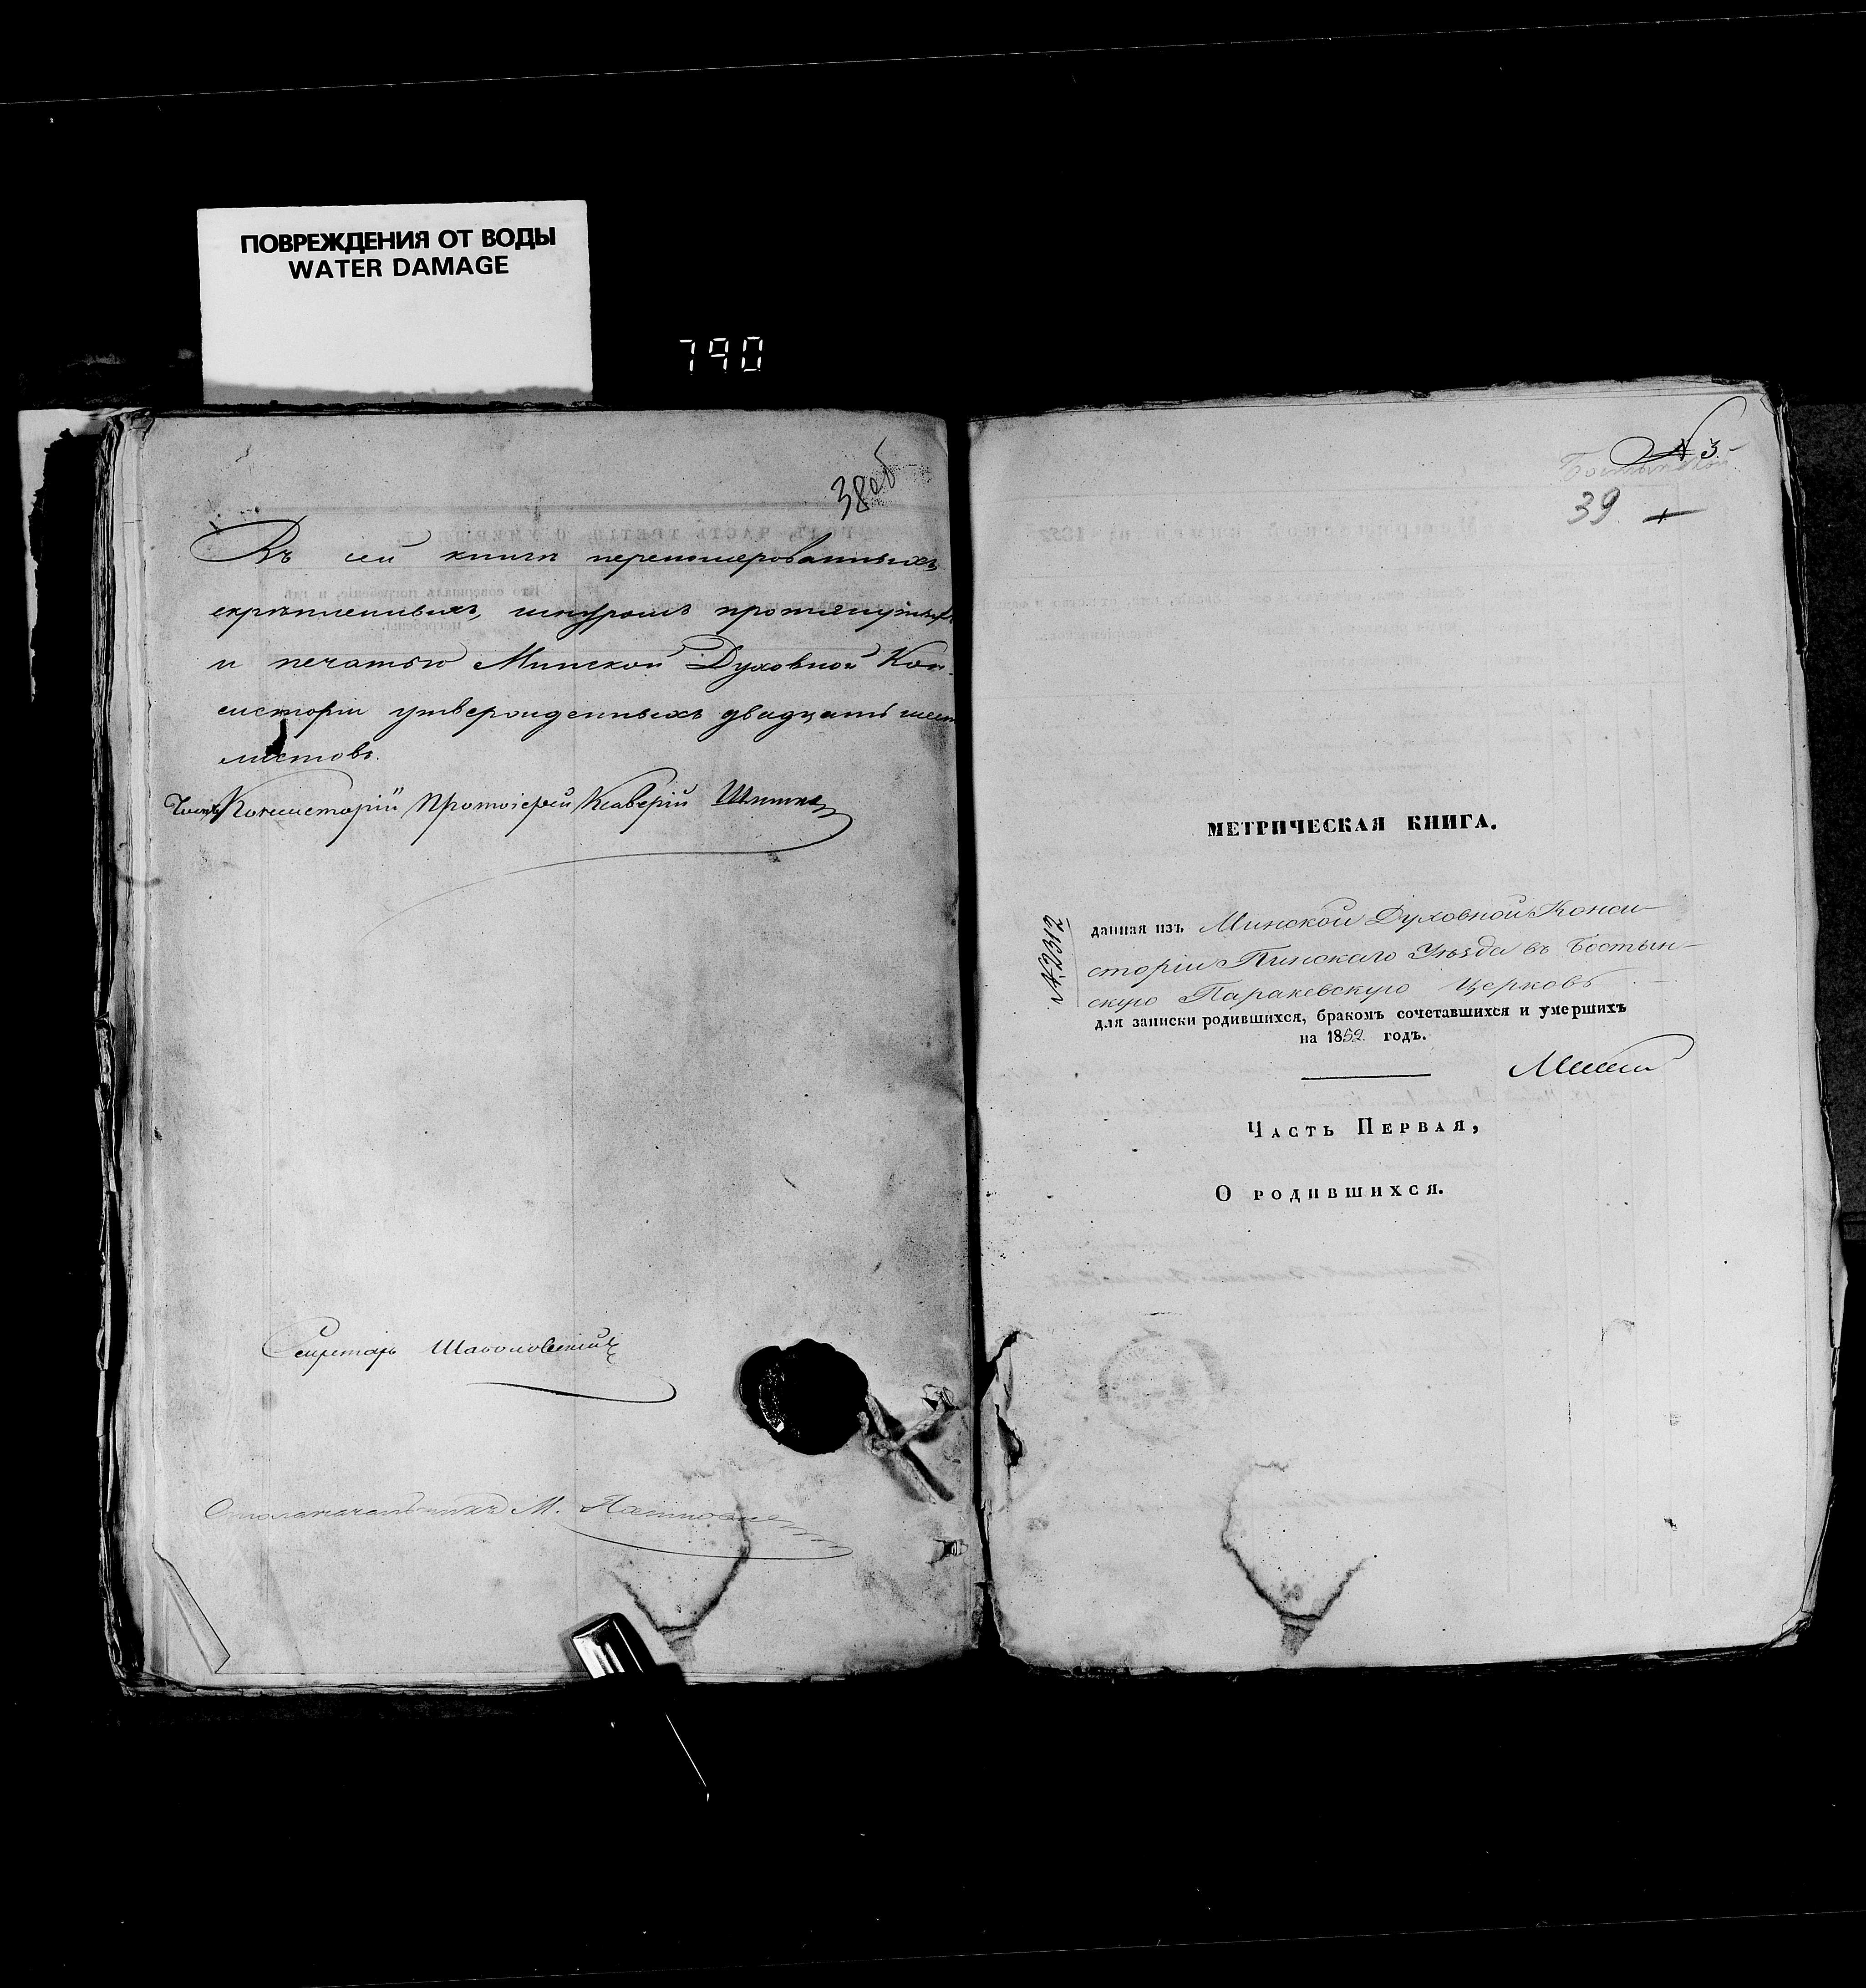 ПОВРЕЖДЕНИЯ ОТ ВОДЫ
WATER DAMAGE
790
38об
Въ сей книги перенумерованныхъ,
скрѣпленныхъ, шнуромъ протянутыхъ
и печатью Минской Духовной Кон-
систоріи утвержденныхъ двадцать шесть
листовъ.
Членъ Консисторіи Протоіерей Ксаверій
Секретарь
Столоначальникъ М.
N 3
Бостынской
39
МЕТРИЧЕСКАЯ КНИГА.
№ 2312
данная изъ Минской Духовной Конси-
сторіи Пинскаго Уѣзда въ Бостын-
скую Паракевскую Церковь
для записки родившихся, бракомъ сочетавшихся и умершихъ
на 1852 годъ.
Часть Первая,
О родившихся.